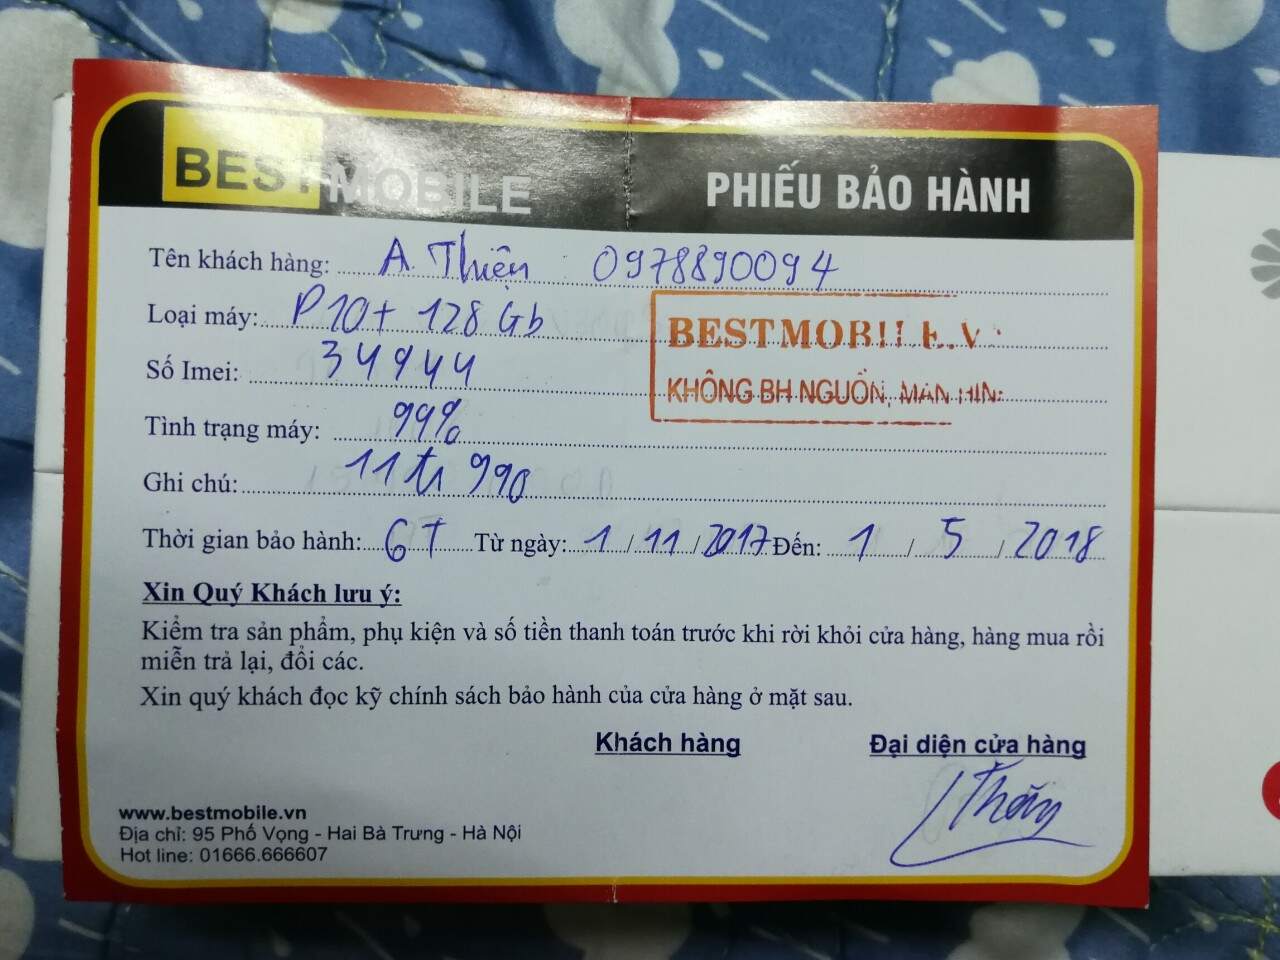 BESTMOBILE
PHIẾU BẢO HÀNH
Tên khách hàng: A. Thiện 0978890094
Loại máy: P10+ 128 Gb
BESTMOBILE.V
Số Imei: 34944
KHÔNG BH NGUỒN, MÀN HÌN
Tình trạng máy: 99%
Ghi chú: 11tr 990
Thời gian bảo hành: 6T Từ ngày: 1 / 11 / 2017 Đến: 1 / 5 / 2018
Xin Quý Khách lưu ý:
Kiểm tra sản phẩm, phụ kiện và số tiền thanh toán trước khi rời khỏi cửa hàng, hàng mua rồi
miễn trả lại, đổi các.
Xin quý khách đọc kỹ chính sách bảo hành của cửa hàng ở mặt sau.
Khách hàng
Đại diện cửa hàng
www.bestmobile.vn
Địa chỉ: 95 Phố Vọng - Hai Bà Trưng - Hà Nội
Hot line: 01666.666607